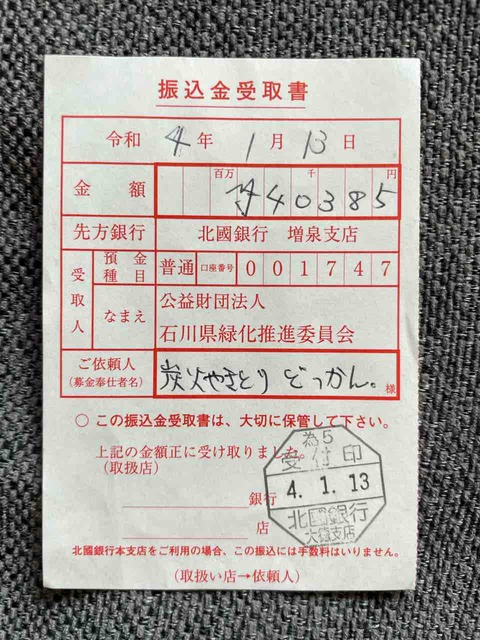 振込金受取書
令和 4年 1月 13日
金額 百万 千 円 ¥40385
先方銀行 北國銀行 増泉支店
受取人 預金種目 普通 口座番号 001747
なまえ 公益財団法人
石川県緑化推進委員会
ご依頼人 炭火やきとり どっかん。 様
(募金奉仕者名)
○ この振込金受取書は、大切に保管して下さい。
上記の金額正に受け取りました。
(取扱店)
為5
受付印
銀行
4.1.13
北國銀行
店
大徳支店
北國銀行本支店をご利用の場合、この振込には手数料はいりません。
(取扱い店→依頼人)